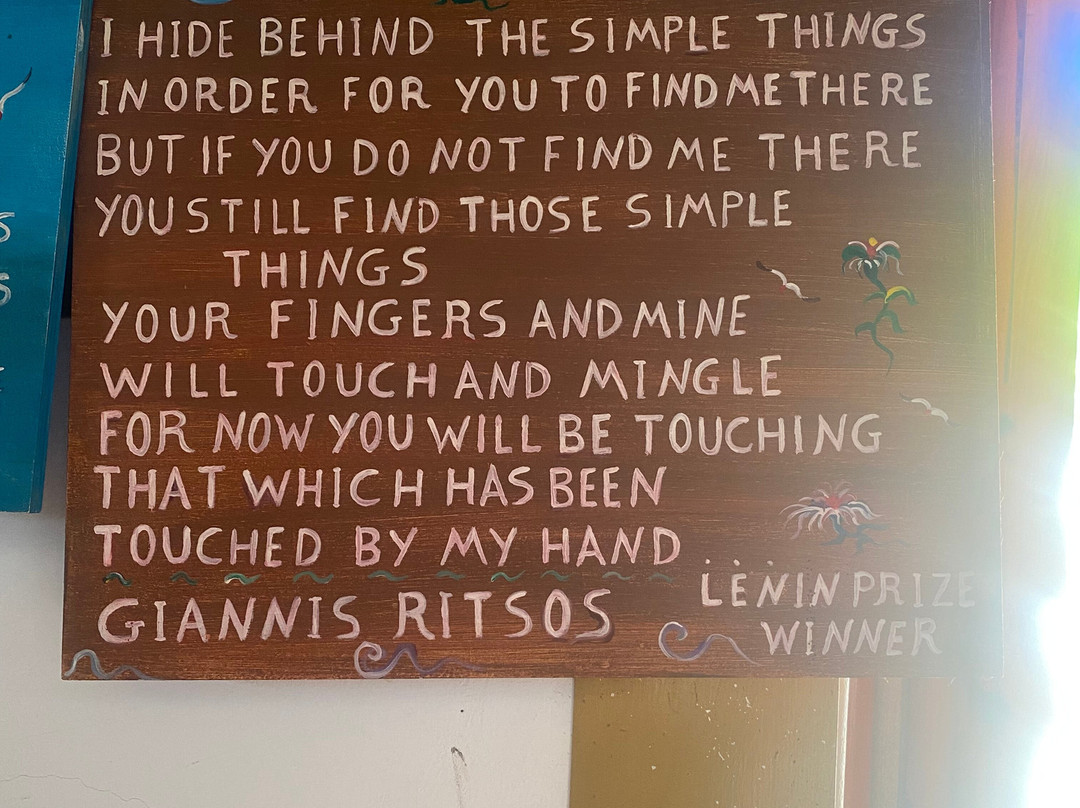 I HIDE BEHIND THE SIMPLE THINGS
IN ORDER FOR YOU TO FIND ME THERE
BUT IF YOU DO NOT FIND ME THERE
YOU STILL FIND THOSE SIMPLE
THINGS
YOUR FINGERS AND MINE
WILL TOUCH AND MINGLE
FOR NOW YOU WILL BE TOUCHING
THAT WHICH HAS BEEN
TOUCHED BY MY HAND
GIANNIS RITSOS
LENIN PRIZE
WINNER